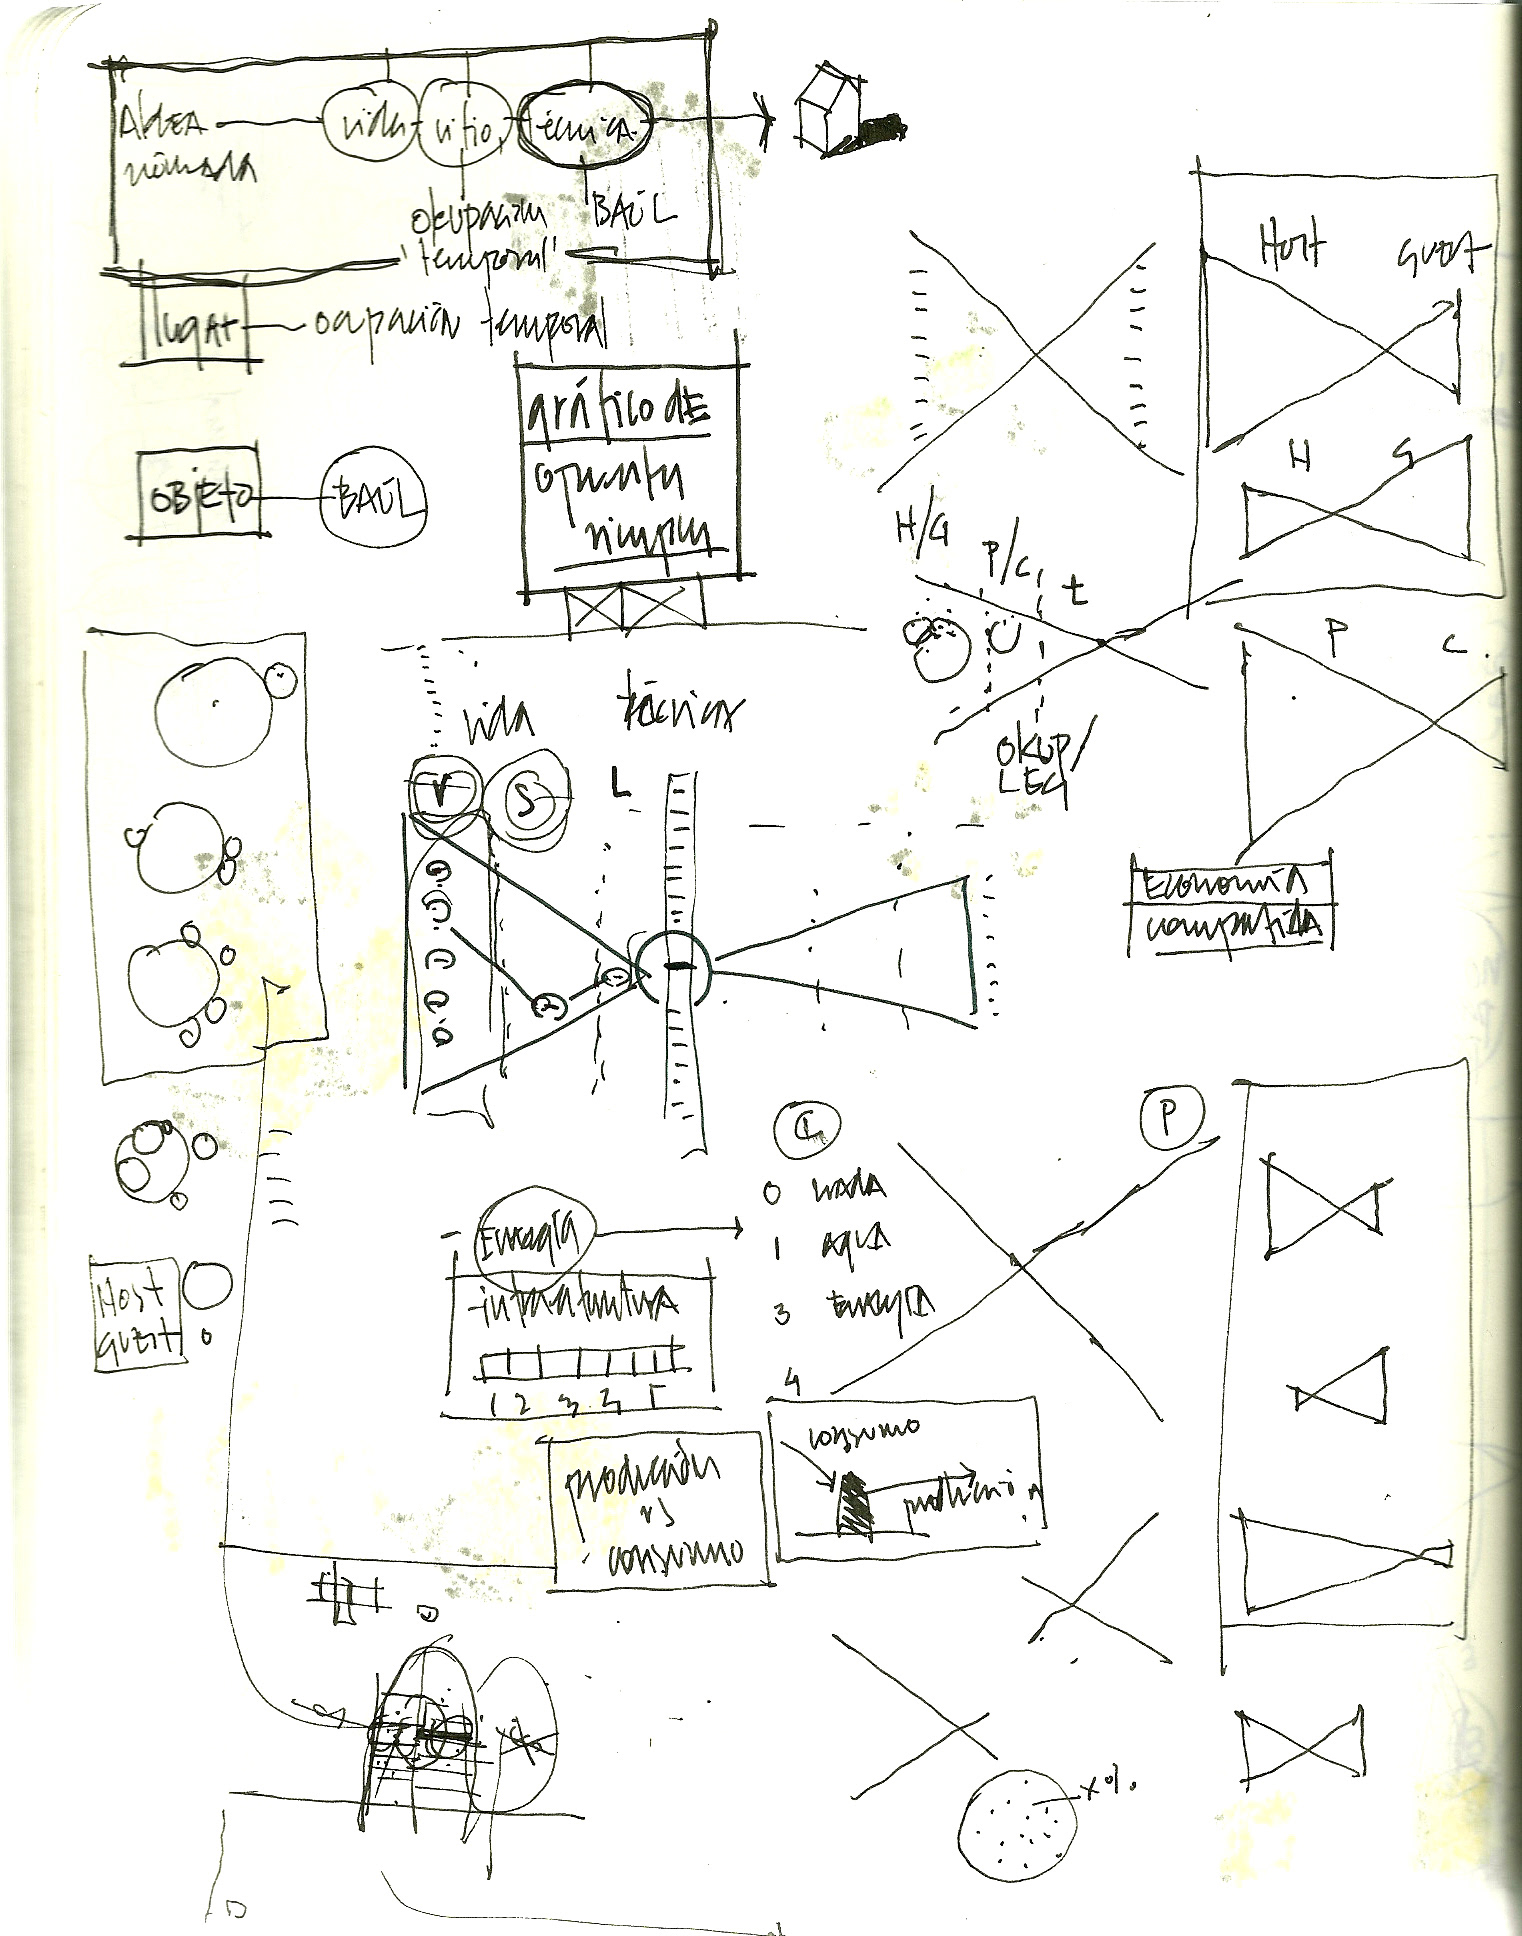 ALDEA
nómada
vida
sitio
técnica
okupación
'temporal'
BAÚL
lugar
ocupación temporal
OBJETO
BAÚL
gráfico de
Host
Guest
H
G
H/G
P/C
t
OKUP/
LEG
P
C
vida
técnica
V
S
L
2
1
Economía
compartida
C
P
0 nada
1 agua
3 Energía
4
Energía
infraestructura
1 2 3 4 5
Host
guest
producción
vs
consumo
consumo
producción
x%